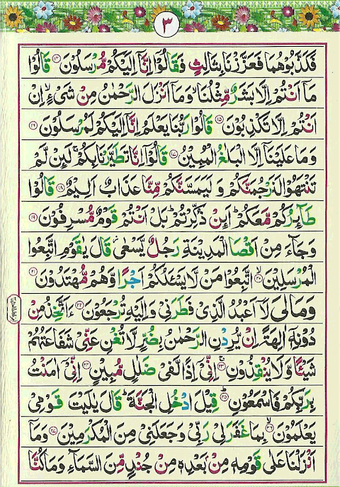 ٣
فَكَذَّبُوْهُمَا فَعَزَّزْنَا بِثَالِثٍ فَقَالُوْۤا اِنَّاۤ اِلَيْكُمْ مُّرْسَلُوْنَ ۝۱۴ قَالُوْا
مَاۤ اَنْتُمْ اِلَّا بَشَرٌ مِّثْلُنَا ۙ وَمَاۤ اَنْزَلَ الرَّحْمٰنُ مِنْ شَيْءٍ ۙ اِنْ
اَنْتُمْ اِلَّا تَكْذِبُوْنَ ۝۱۵ قَالُوْا رَبُّنَا يَعْلَمُ اِنَّاۤ اِلَيْكُمْ لَمُرْسَلُوْنَ ۝۱۶
وَمَا عَلَيْنَاۤ اِلَّا الْبَلٰغُ الْمُبِيْنُ ۝۱۷ قَالُوْۤا اِنَّا تَطَيَّرْنَا بِكُمْ ۚ لَئِنْ لَّمْ
تَنْتَهُوْا لَنَرْجُمَنَّكُمْ وَلَيَمَسَّنَّكُمْ مِّنَّا عَذَابٌ اَلِيْمٌ ۝۱۸ قَالُوْا
طَآئِرُكُمْ مَّعَكُمْ ؕ اَئِنْ ذُكِّرْتُمْ ؕ بَلْ اَنْتُمْ قَوْمٌ مُّسْرِفُوْنَ ۝۱۹
وَجَآءَ مِنْ اَقْصَا الْمَدِيْنَةِ رَجُلٌ يَّسْعٰى قَالَ يٰقَوْمِ اتَّبِعُوا
الْمُرْسَلِيْنَ ۝۲۰ اتَّبِعُوْا مَنْ لَّا يَسْـَٔلُكُمْ اَجْرًا وَّهُمْ مُّهْتَدُوْنَ ۝۲۱
وَمَا لِيَ لَاۤ اَعْبُدُ الَّذِيْ فَطَرَنِيْ وَاِلَيْهِ تُرْجَعُوْنَ ۝۲۲ ءَاَتَّخِذُ مِنْ
دُوْنِهٖۤ اٰلِهَةً اِنْ يُّرِدْنِ الرَّحْمٰنُ بِضُرٍّ لَّا تُغْنِ عَنِّيْ شَفَاعَتُهُمْ
شَيْـًٔا وَّلَا يُنْقِذُوْنِ ۝۲۳ اِنِّيْۤ اِذًا لَّفِيْ ضَلٰلٍ مُّبِيْنٍ ۝۲۴ اِنِّيْۤ اٰمَنْتُ
بِرَبِّكُمْ فَاسْمَعُوْنِ ۝۲۵ قِيْلَ ادْخُلِ الْجَنَّةَ ؕ قَالَ يٰلَيْتَ قَوْمِيْ
يَعْلَمُوْنَ ۝۲۶ بِمَا غَفَرَ لِيْ رَبِّيْ وَجَعَلَنِيْ مِنَ الْمُكْرَمِيْنَ ۝۲۷ وَمَاۤ
اَنْزَلْنَا عَلٰى قَوْمِهٖ مِنْۢ بَعْدِهٖ مِنْ جُنْدٍ مِّنَ السَّمَآءِ وَمَا كُنَّا